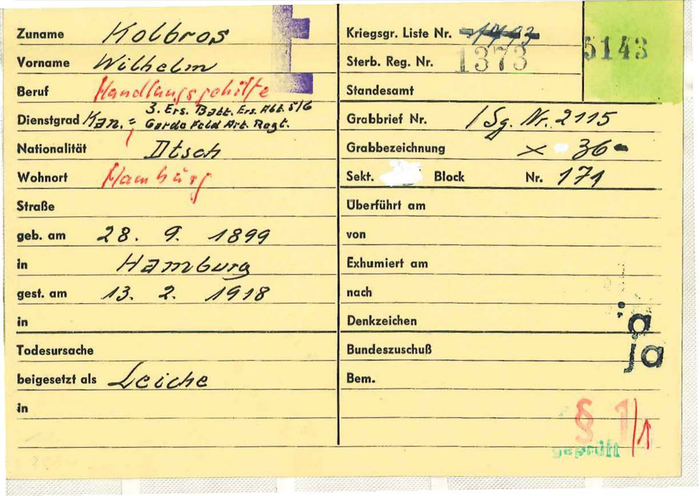 Zuname Kolbros
Vorname Wilhelm
Beruf Handlungsgehilfe
3. Ers. Batt. Ers. Abt. 5/6
Dienstgrad Kan. = Garde Feld Art. Regt.
Nationalität Dtsch
Wohnort Hamburg
Straße
geb. am 28. 9. 1899
in Hamburg
gest. am 13. 2. 1918
in
Todesursache
beigesetzt als Leiche
in
Kriegsgr. Liste Nr.
5143
Sterb. Reg. Nr. 1373
Standesamt
Grabbrief Nr. / Sg. Nr. 2115
Grabbezeichnung x 36-
Sekt. Block Nr. 171
Überführt am
von
Exhumiert am
nach
Denkzeichen ja
Bundeszuschuß ja
Bem.
§ 1/1
geprüft